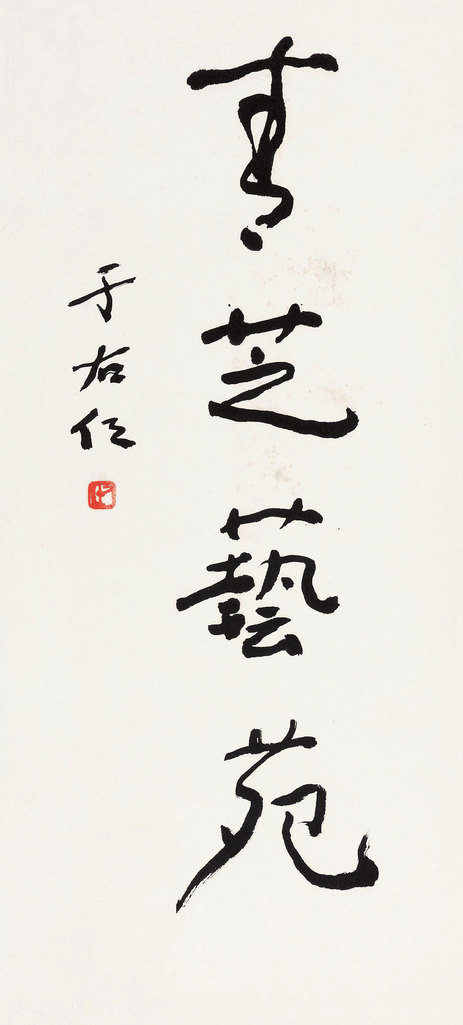 青芝藝苑
于右任